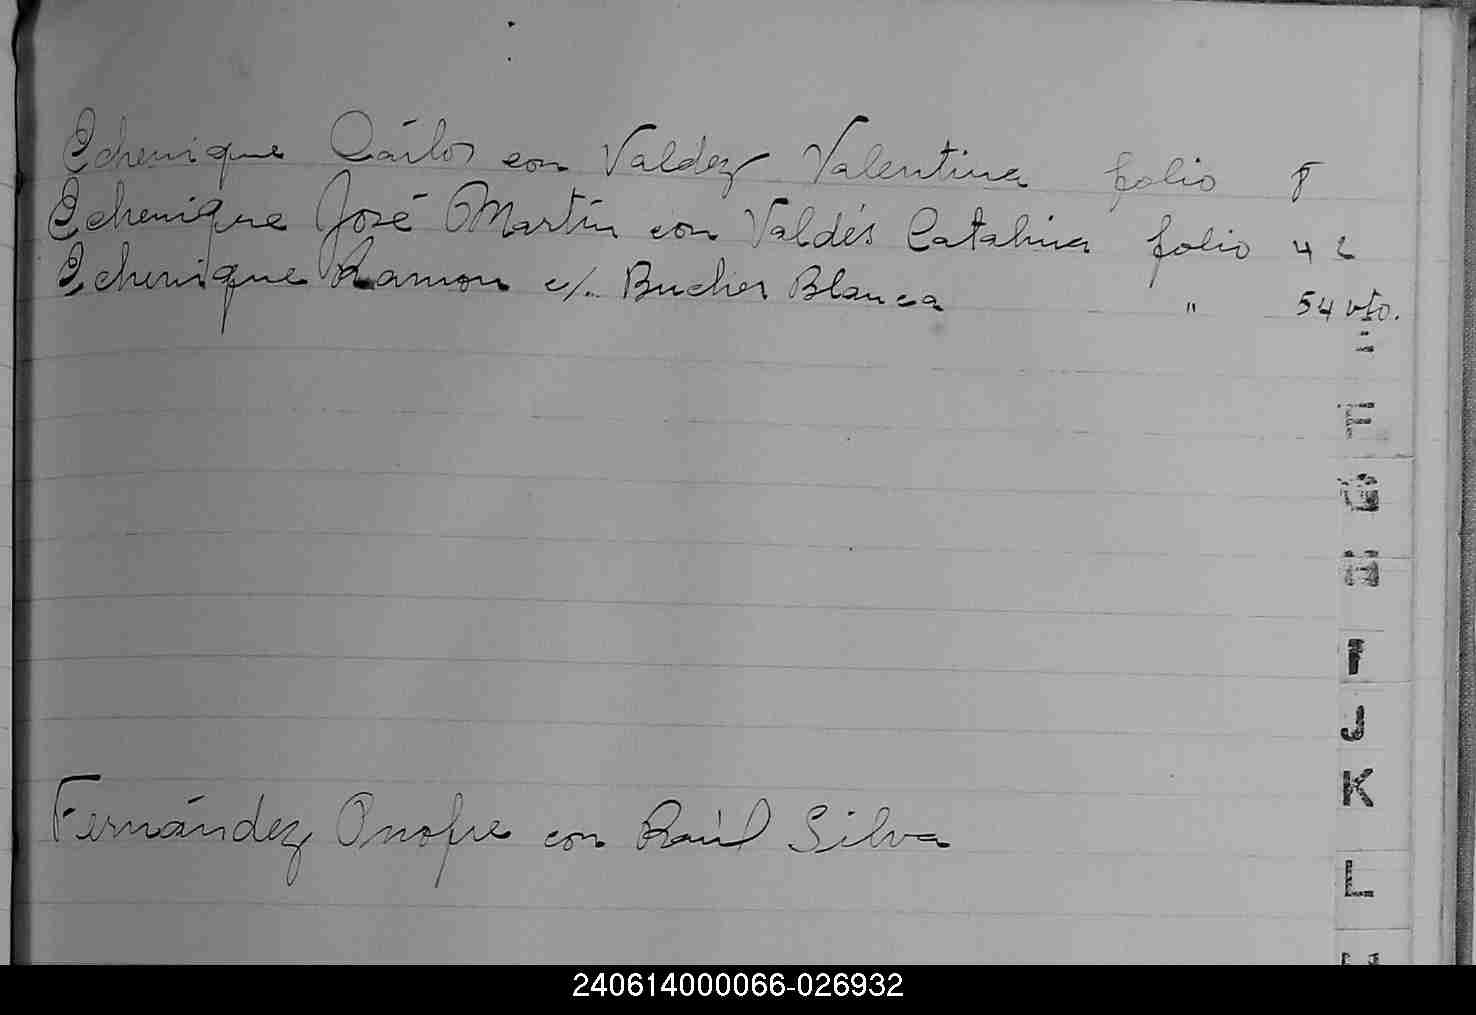 Echenique Cárlos con Valdez Valentina folio 8
Echenique José Martín con Valdés Catalina folio 42
Echenique Ramon c/. Bucher Blanca " 54 vto.
E
F
G
H
I
J
K
Fernández Onofre con Raúl Silva
L
240614000066-026932